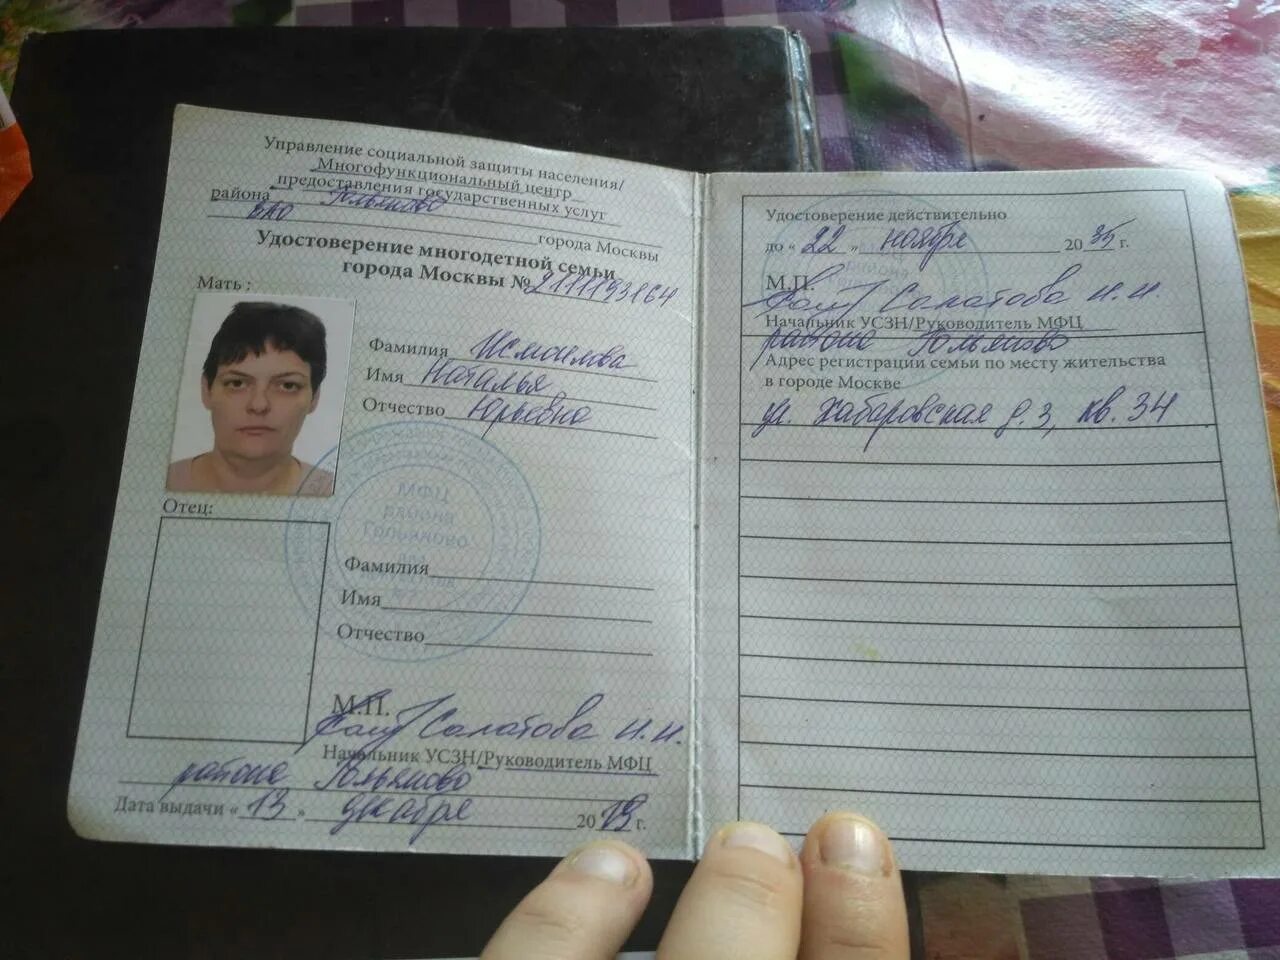 Управление социальной защиты населения/
Многофункциональный центр
предоставления государственных услуг
района Гольяново
ВАО города Москвы
Удостоверение многодетной семьи
города Москвы №
Мать :
Фамилия Исмаилова
Имя Наталья
Отчество Юрьевна
МФЦ
района
Гольяново
Отец:
Фамилия
Имя
Отчество
М.П. Салатова И.И.
Начальник УСЗН/Руководитель МФЦ
района Гольяново
Дата выдачи « 13 » декабря 2019 г.
Удостоверение действительно
до « 22 » ноября 2035 г.
М.П.
Салатова И.И.
Начальник УСЗН/Руководитель МФЦ
района Гольяново
Адрес регистрации семьи по месту жительства
в городе Москве
ул. Хабаровская д. 3, кв. 34